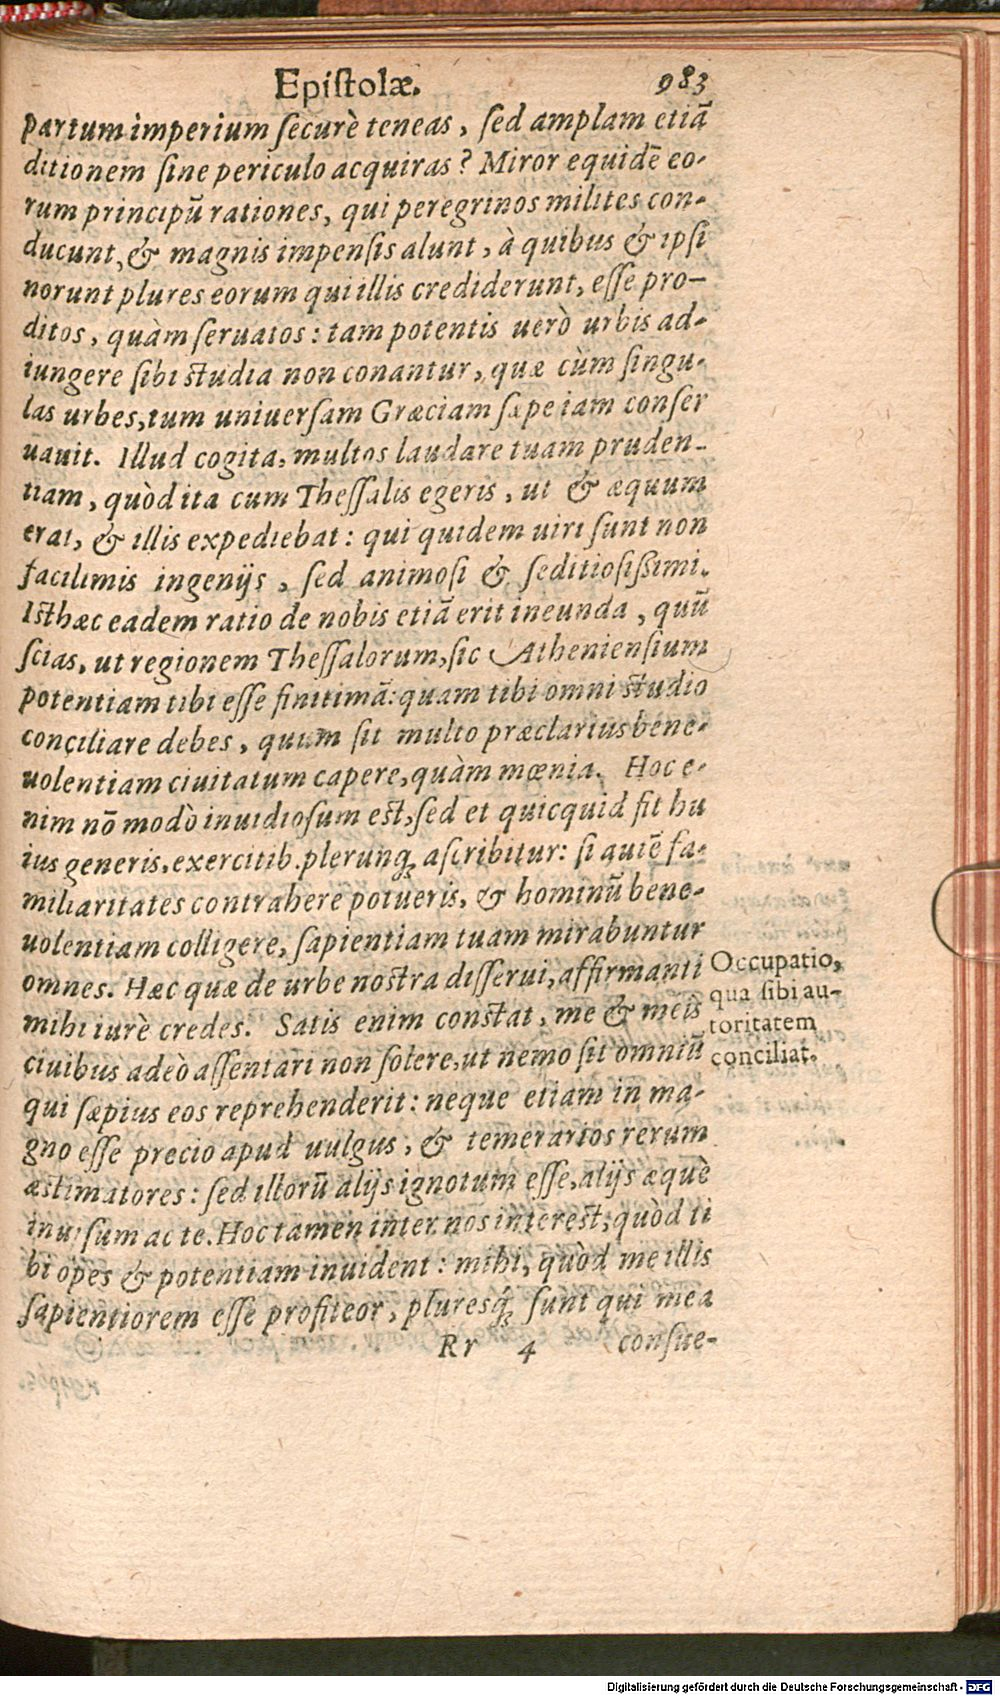 Epiſtolæ. 983
partum imperium ſecurè teneas, ſed amplam etiā
ditionem ſine periculo acquiras? Miror equidē eo-
rum principū rationes, qui peregrinos milites con-
ducunt, & magnis impenſis alunt, à quibus & ipſi
norunt plures eorum qui illis crediderunt, eſſe pro-
ditos, quàm ſeruatos: tam potentis uerò urbis ad-
iungere ſibi ſtudia non conantur, quæ cùm ſingu-
las urbes, tum uniuerſam Græciam ſæpe iam conſer
uauit. Illud cogita, multos laudare tuam pruden-
tiam, quòd ita cum Theſſalis egeris, ut & æquum
erat, & illis expediebat: qui quidem uiri ſunt non
facilimis ingenijs, ſed animoſi & ſeditioſiſſimi.
Iſthæc eadem ratio de nobis etiā erit ineunda, quū
ſcias, ut regionem Theſſalorum, ſic Athenienſium
potentiam tibi eſſe finitimā: quam tibi omni ſtudio
conciliare debes, quum ſit multo præclarius bene-
uolentiam ciuitatum capere, quàm mœnia. Hoc e-
nim nō modò inuidioſum eſt, ſed et quicquid fit hu
ius generis, exercitib. plerunq; aſcribitur: ſi quiē fa-
miliaritates contrahere potueris, & hominū bene-
uolentiam colligere, ſapientiam tuam mirabuntur
omnes. Hæc quæ de urbe noſtra diſſerui, affirmanti
mihi iurè credes. Satis enim conſtat, me & meis
ciuibus adeò aſſentari non ſolere, ut nemo ſit omniū
qui ſæpius eos reprehenderit: neque etiam in ma-
gno eſſe precio apud uulgus, & temerarios rerum
æſtimatores: ſed illorū alijs ignotum eſſe, alijs æquè
inuiſum ac te. Hoc tamen inter nos intereſt, quòd ti
bi opes & potentiam inuident: mihi, quòd me illis
ſapientiorem eſſe profiteor, pluresq́; ſunt qui mea
Rr 4 conſue-
Occupatio,
qua ſibi au-
toritatem
conciliat.
Digitalisierung gefördert durch die Deutsche Forschungsgemeinschaft - DFG